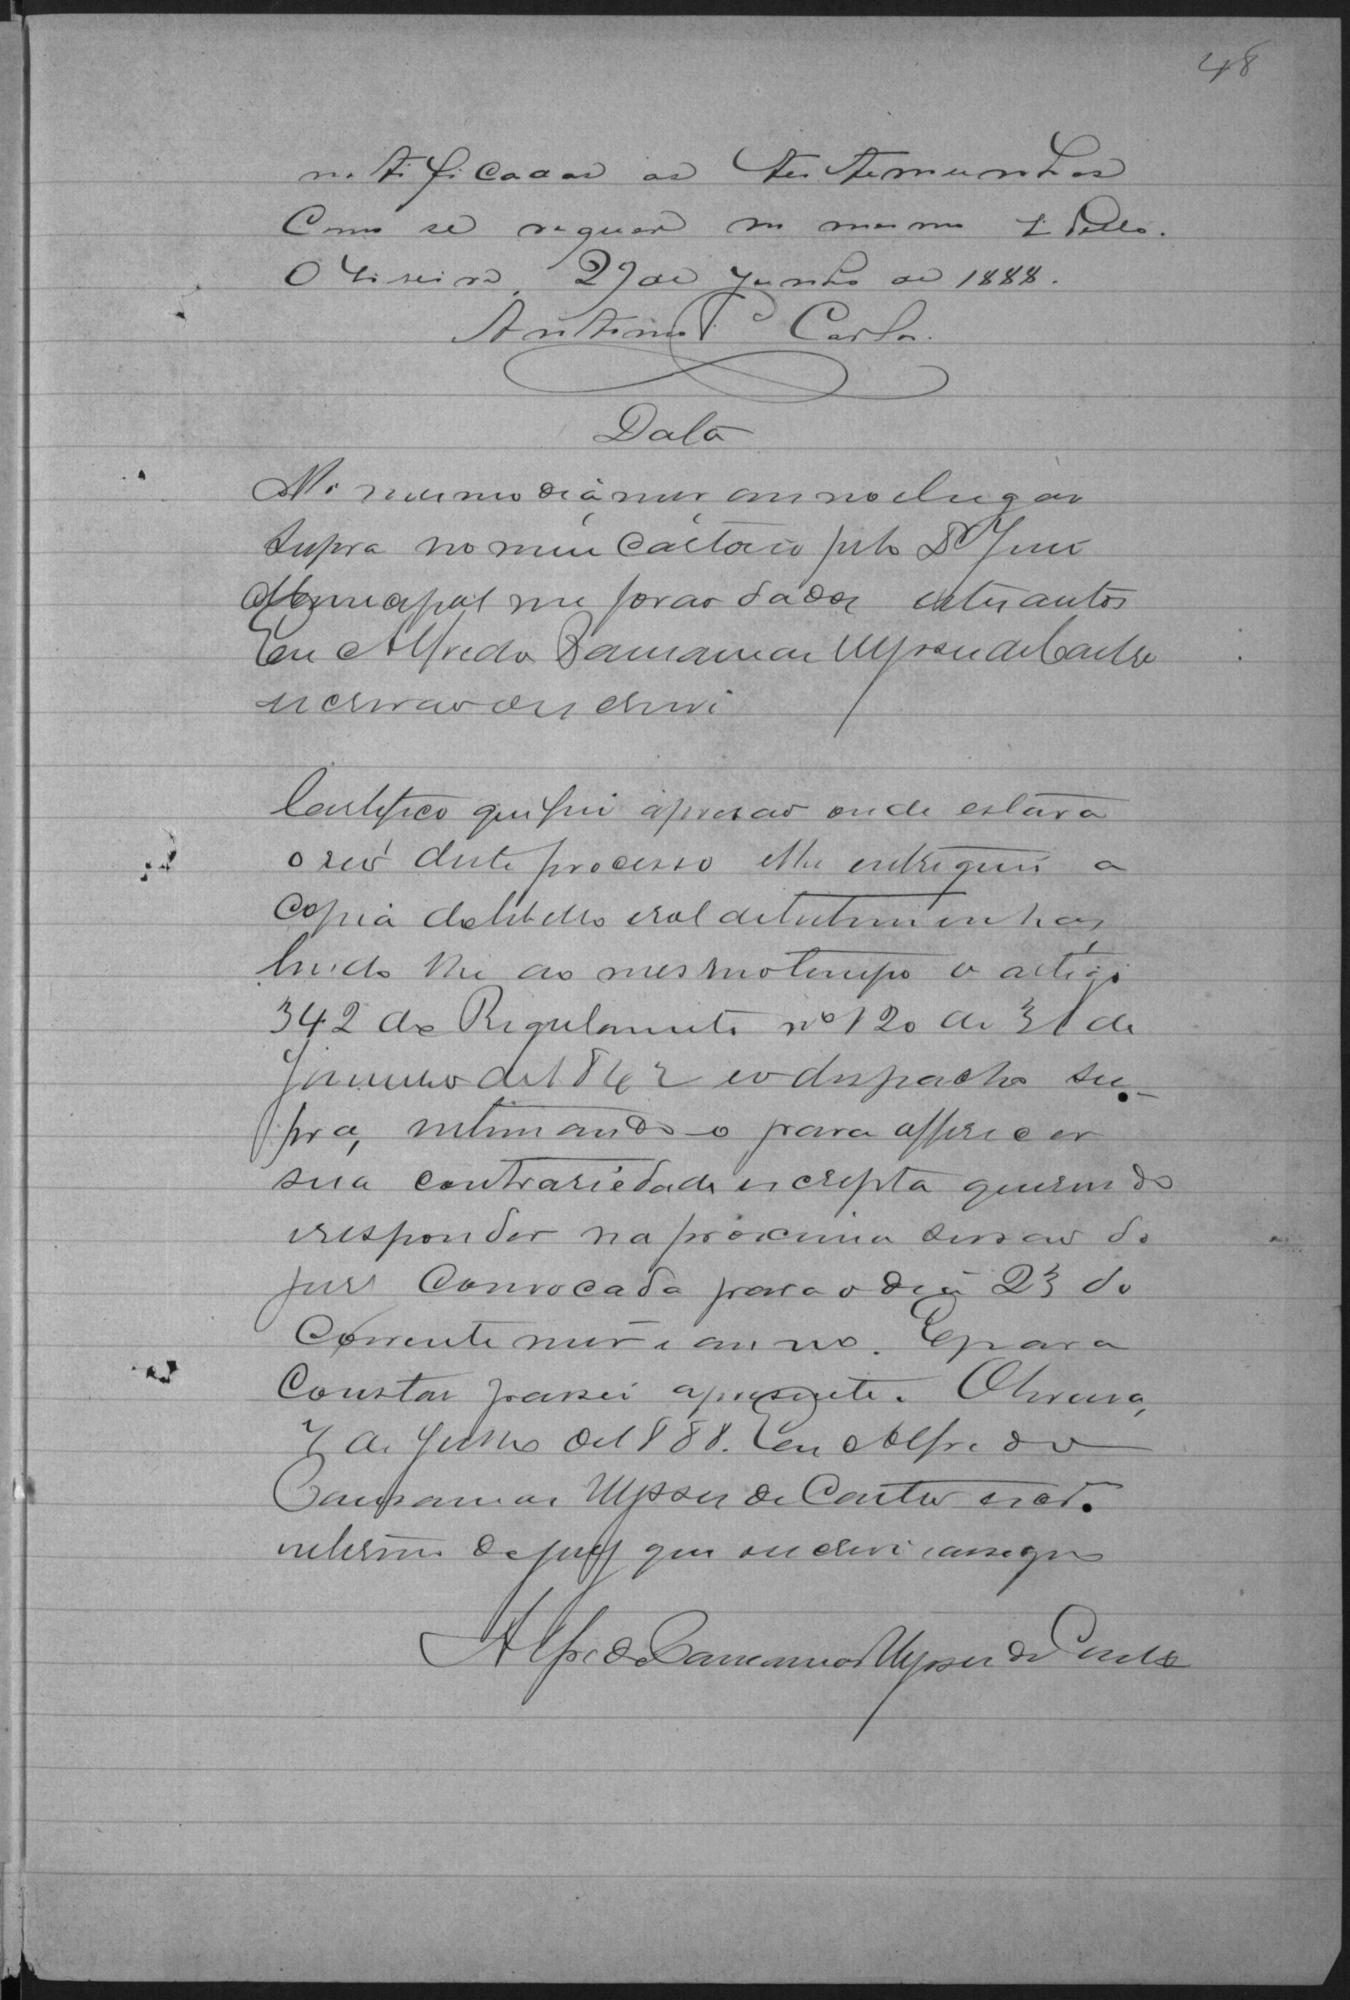 48
notificadas as testemunhas
Como se requer no mesmo Libello.
Oliveira, 27 de Junho de 1888.
Antonio Carlos.
Data
No mesmo dia, mez, anno e lugar
supra no meu cartorio pelo Dr Juiz
Municipal me forão dados estes autos
Eu Alfredo Ulysses de Castro
escrivão o escrevi
Certifico que fui a prisão onde estava
o réo deste processo e lhe entreguei a
copia do libello e rol de testemunhas,
lendo lhe ao mesmo tempo o artigo
342 do Regulamento nº 120 de 31 de
Janeiro de 1842 e o despacho su-
pra, intimando-o para offerecer
sua contrariedade escripta querendo
e responder na proxima sessão do
jury Convocada para o dia 23 do
Corrente mez e anno. E para
Constar passei a presente. Oliveira,
7 de Julho de 1888. Eu Alfredo
Ulysses de Castro
interino do jury que escrevi e assigno
Alfredo Ulysses de Castro